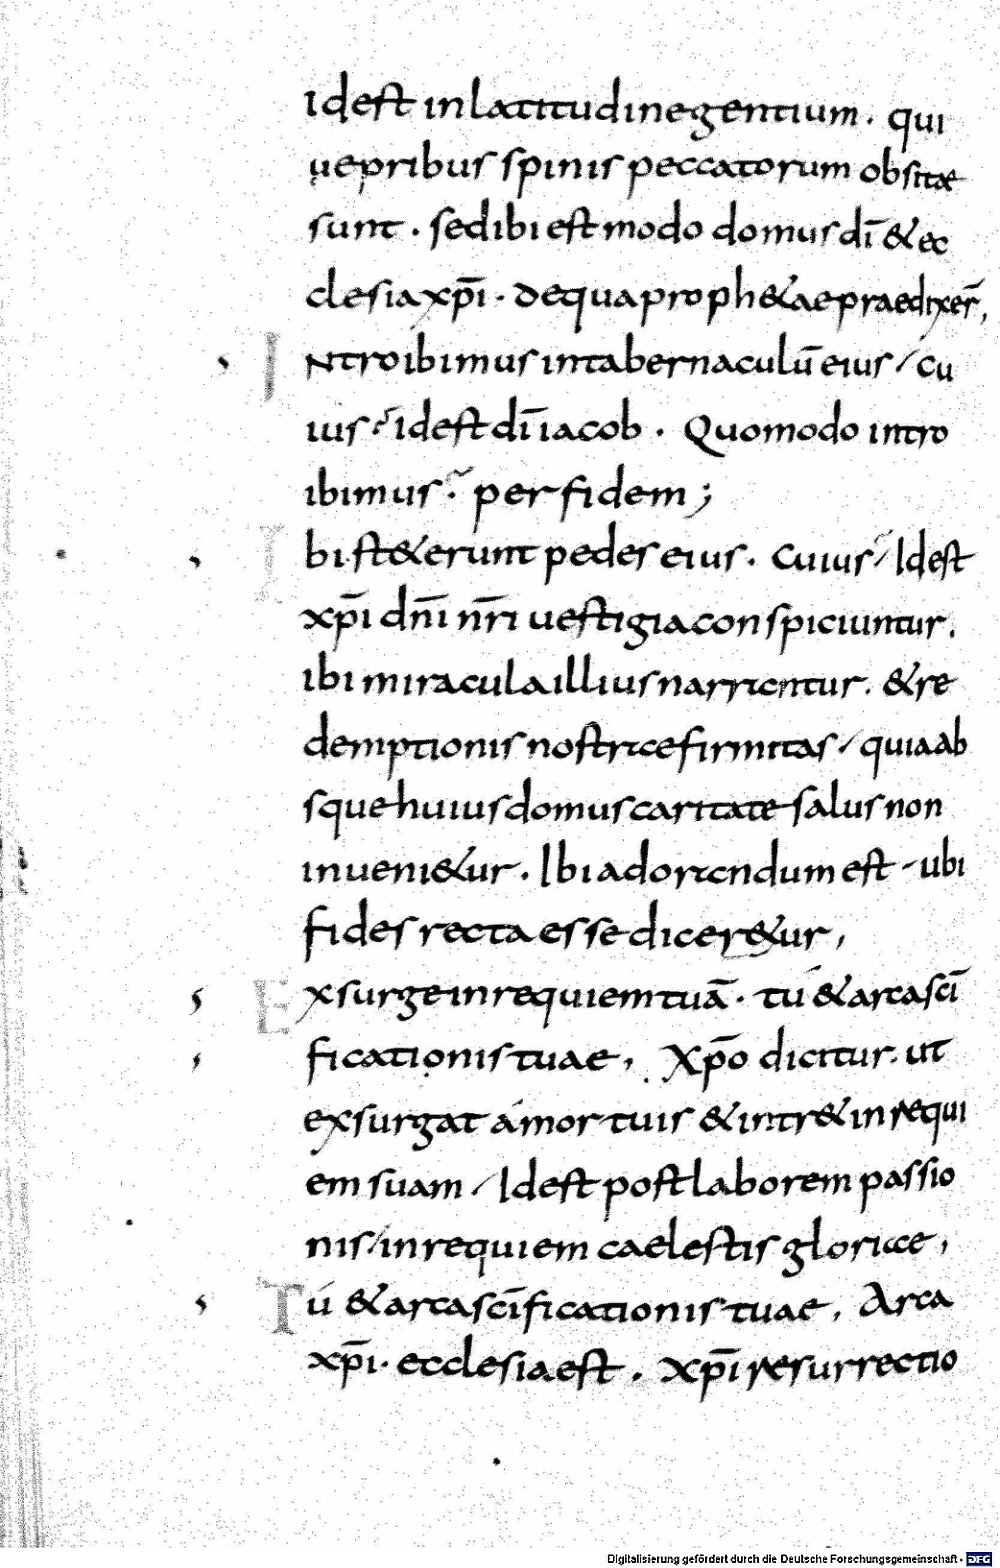 idest in latitudine gentium. qui
uepribus spinis peccatorum obsitae
sunt. sed ibi est modo domus dī & ec
clesia xp̄i. de qua proph&ae praedixer̄,
Introibimus in tabernaculū eius / cu
ius idest dī iacob. Quomodo intro
ibimus. per fidem;
Ibi st&erunt pedes eius. Cuius / Idest
xp̄i dn̄i nr̄i uestigia conspiciuntur.
ibi miracula illius narrantur. & re
demptionis nostrae firmitas / quia ab
sque huius domus caritate salus non
inueni&ur. Ibi adorandum est - ubi
fides recta esse dicer&ur,
Exsurge in requiem tuā. tú & arca scī
ficationis tuae, Xp̄o dicitur. ut
exsurgat á mortuis & intr& in requi
em suam / Idest post laborem passio
nis / in requiem caelestis gloriae,
Tú & arca scīficationis tuae, Arca
xp̄i. ecclesia est. Xp̄i resurrectio
Digitalisierung gefördert durch die Deutsche Forschungsgemeinschaft - DFG